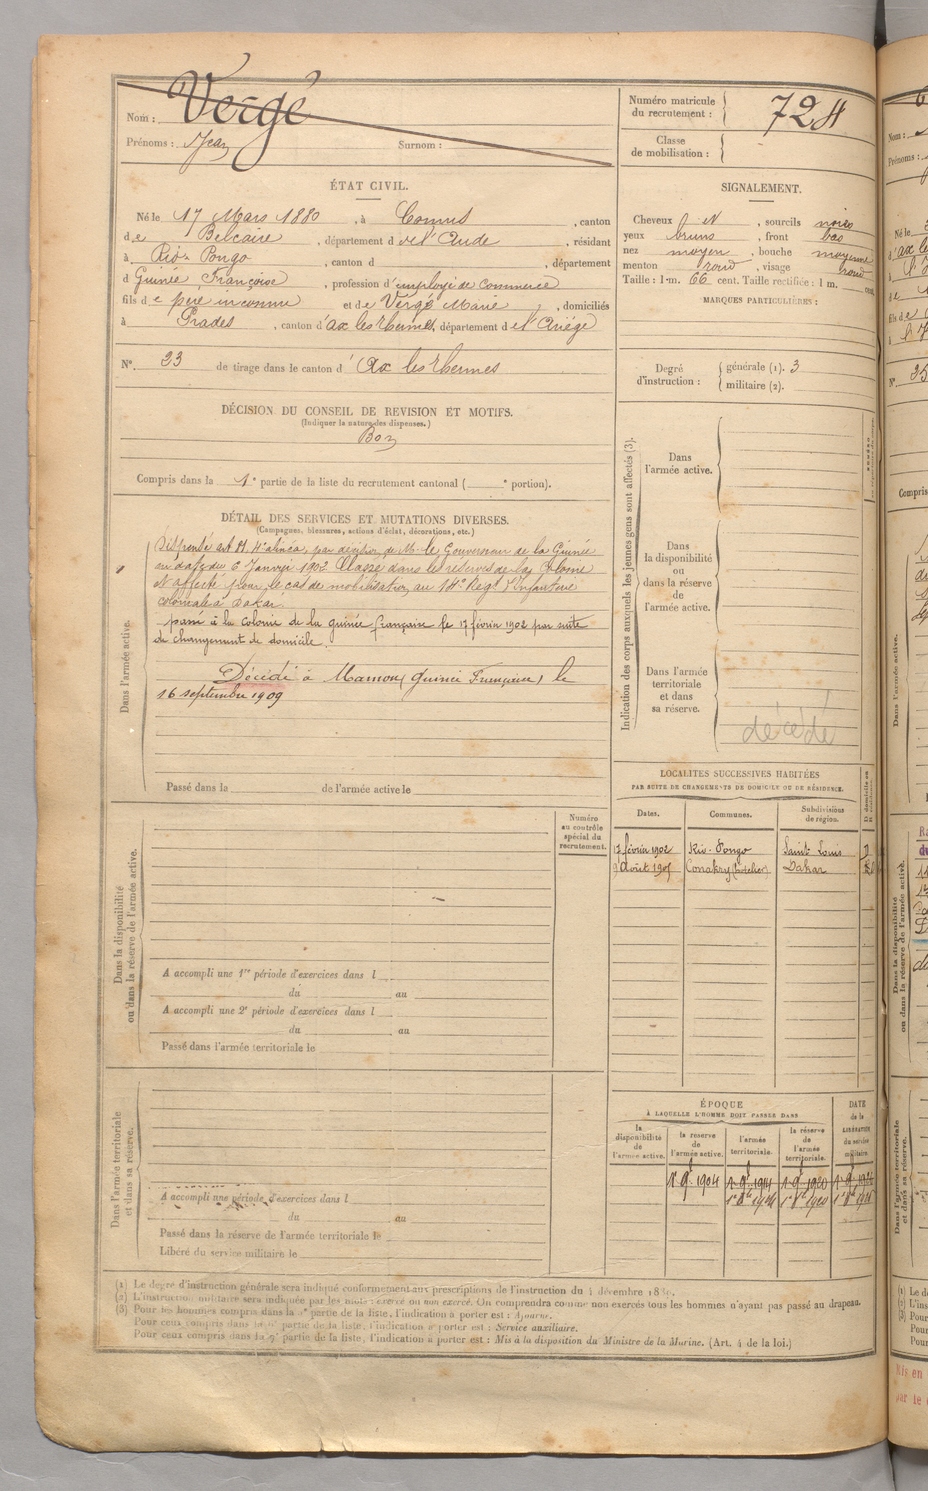 Nom : Vergé
Prénoms : Jean Surnom :
Numéro matricule du recrutement : 724
Classe de mobilisation :
ÉTAT CIVIL.
Né le 17 Mars 1880, à Comus, canton
de Belcaire, département de l'Aude, résidant
à Rio-Pongo, canton d , département
d Guinée Française, profession d'employé de commerce
fils de père inconnu et de Vergé Marie, domiciliés
à Prades, canton d'ax les thermes, département de l'Ariège
N° 23 de tirage dans le canton d' Ax les Thermes
SIGNALEMENT.
Cheveux et, sourcils noirs
yeux bruns, front bas
nez moyen, bouche moyenne
menton rond, visage rond
Taille : 1 m. 66 cent. Taille rectifiée : 1 m. cent.
MARQUES PARTICULIÈRES :
Degré d'instruction : générale (1). 3
militaire (2).
DÉCISION DU CONSEIL DE REVISION ET MOTIFS.
(Indiquer la nature des dispenses.)
Bon
Compris dans la 1e partie de la liste du recrutement cantonal ( e portion).
DÉTAIL DES SERVICES ET MUTATIONS DIVERSES.
(Campagnes, blessures, actions d'éclat, décorations, etc.)
Dans l'armée active.
Dispensé art alinéa, par décision de Mr le Gouverneur de la Guinée
en date du 6 Janvier 1902 Classé dans les réserves de la Colonie
et affecté pour le cas de mobilisation au 14e Regt d'Infanterie
coloniale à Dakar.
passé à la Colonie de la guinée française le 17 février 1902 par suite
de changement de domicile.
Décédé à Mamou (Guinée Française) le
16 septembre 1909
Passé dans la de l'armée active le
Indication des corps auxquels les jeunes gens sont affectés (3).
Dans l'armée active.
Dans la disponibilité ou dans la réserve de l'armée active.
Dans l'armée territoriale et dans sa réserve.
décédé
LOCALITÉS SUCCESSIVES HABITÉES
PAR SUITE DE CHANGEMENTS DE DOMICILE OU DE RÉSIDENCE.
Dates. Communes. Subdivisions de région.
17 février 1902 Rio-Pongo Saint Louis D
9 Août 190 Conakry Dakar
Dans la disponibilité ou dans la réserve de l'armée active.
Numéro au contrôle spécial du recrutement.
A accompli une 1re période d'exercices dans l
du au
A accompli une 2e période d'exercices dans l
du au
Passé dans l'armée territoriale le
Dans l'armée territoriale et dans sa réserve.
A accompli une période d'exercices dans l
du au
Passé dans la réserve de l'armée territoriale le
Libéré du service militaire le
ÉPOQUE
À LAQUELLE L'HOMME DOIT PASSER DANS
la disponibilité de l'armée active. la réserve de l'armée active. l'armée territoriale. la réserve de l'armée territoriale. DATE de la LIBÉRATION du service militaire.
1er 9bre 1904
(1) Le degré d'instruction générale sera indiqué conformément aux prescriptions de l'instruction du 4 décembre 1889.
(2) L'instruction militaire sera indiquée par les mots : exercé ou non exercé. On comprendra comme non exercés tous les hommes n'ayant pas passé au drapeau.
(3) Pour les hommes compris dans la 2e partie de la liste, l'indication à porter est : Ajourné.
Pour ceux compris dans la partie de la liste, l'indication à porter est : Service auxiliaire.
Pour ceux compris dans la partie de la liste, l'indication à porter est : Mis à la disposition du Ministre de la Marine. (Art. 4 de la loi.)